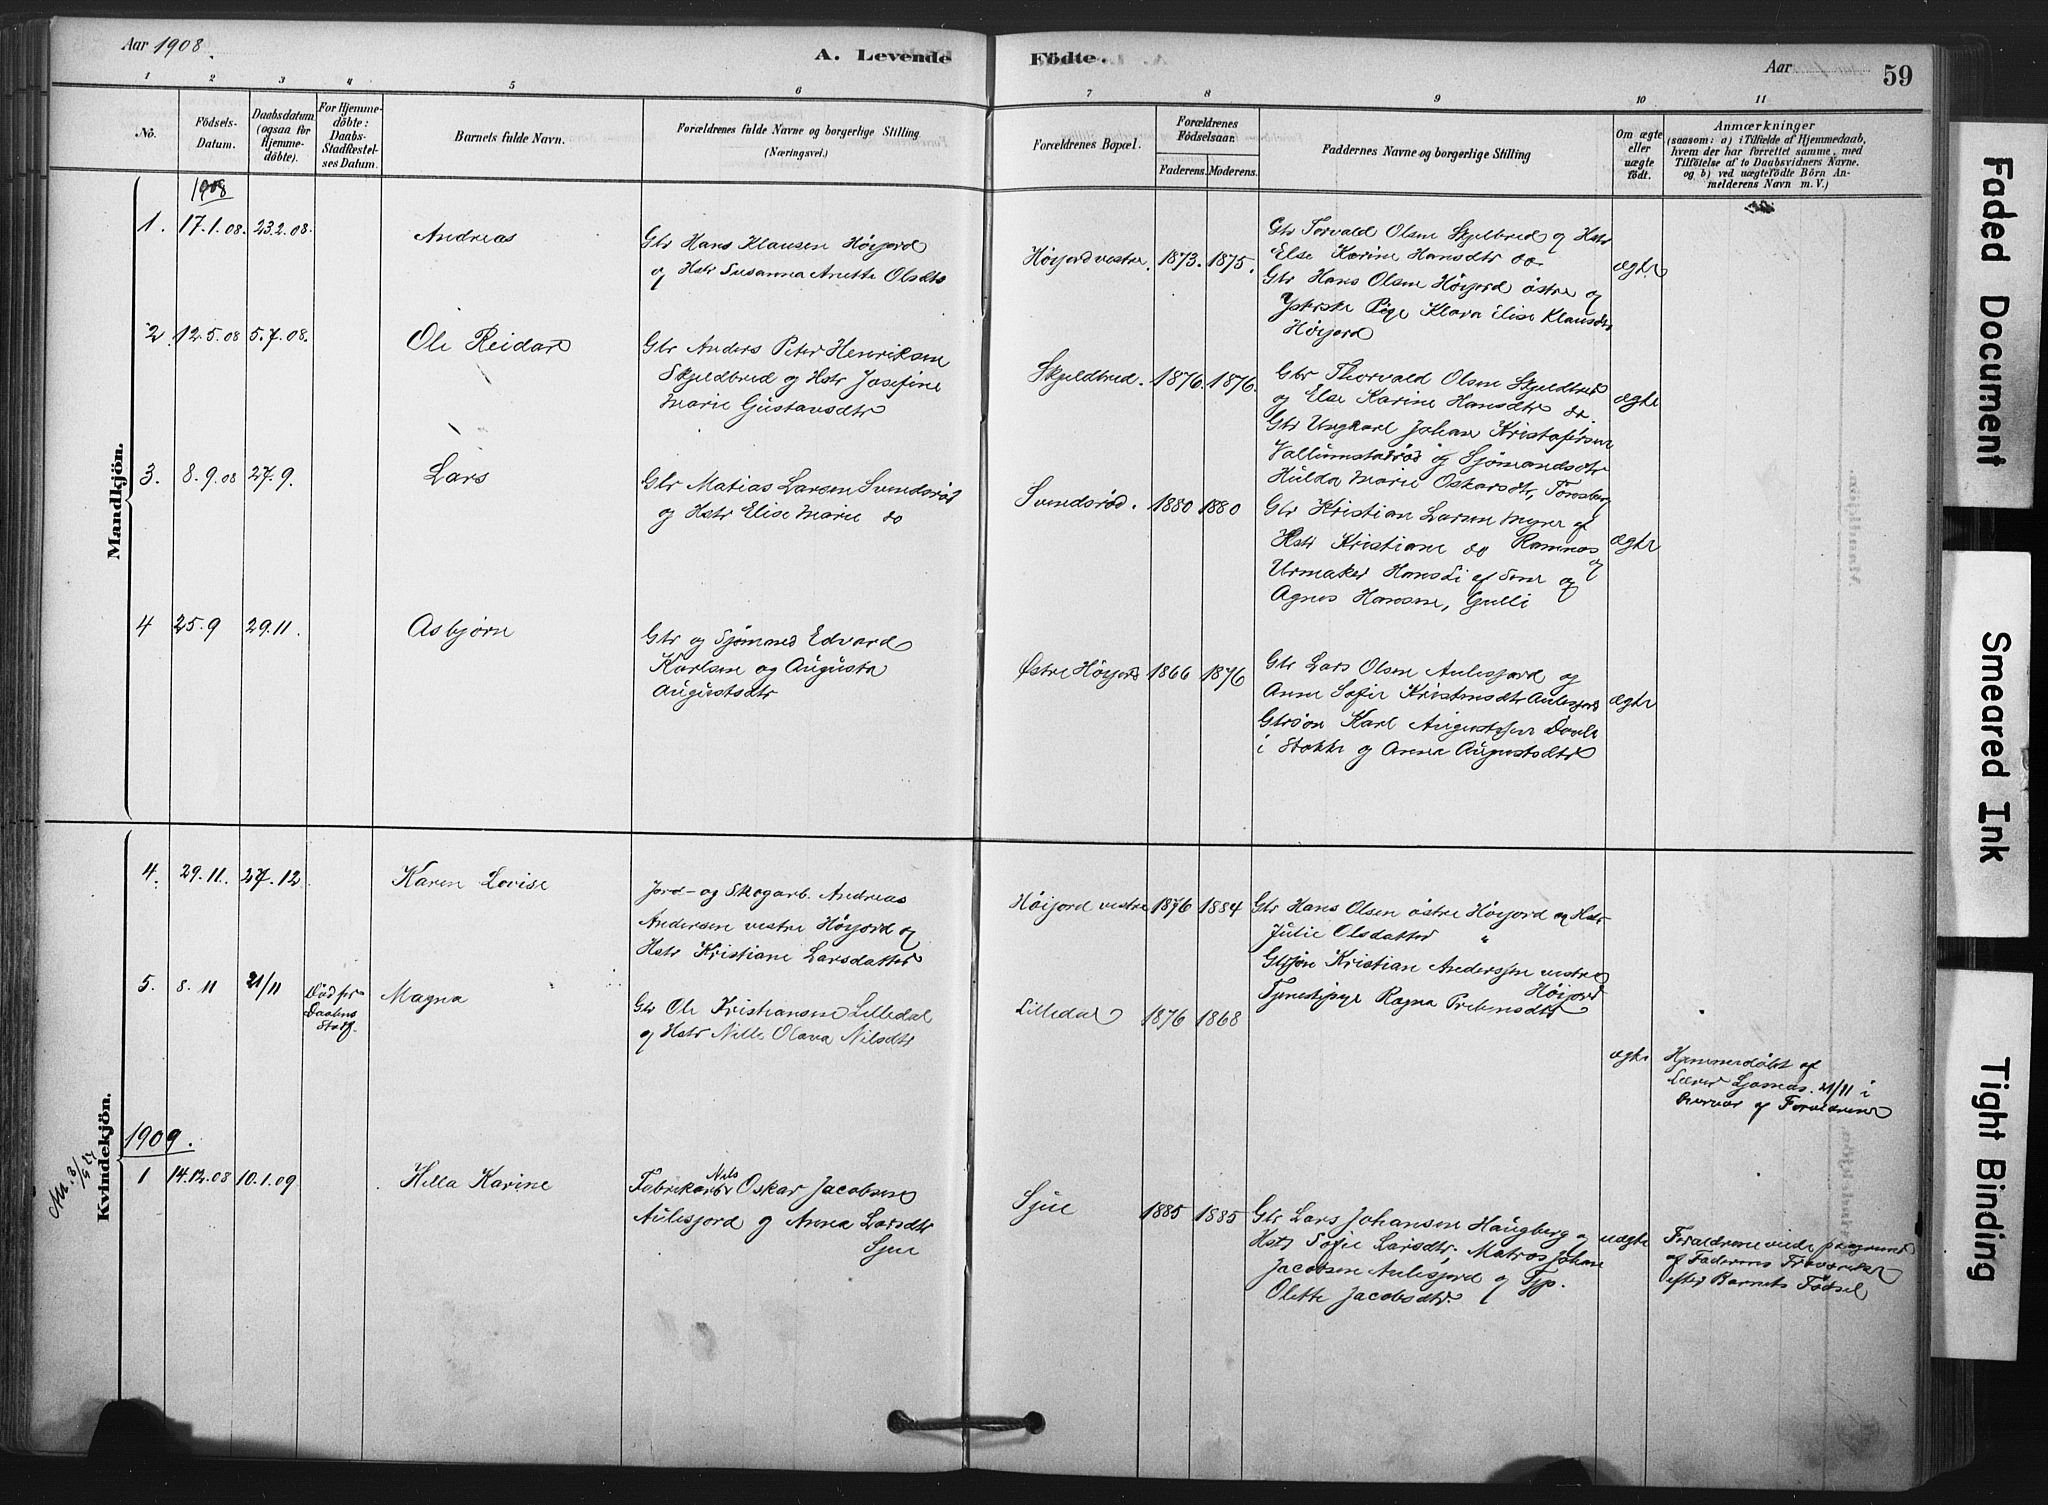 Aar 1908.
A. Levende Fødte.
Aar
59
1 2 3 4 5 6 7 8 9 10 11
No.
Födsels-
Datum.
Daabsdatum
(ogsaa for
Hjemme-
döbte).
For Hjemme-
döbte:
Daabs-
Stadfæstel-
ses Datum.
Barnets fulde Navn.
Forældrenes fulde Navne og borgerlige Stilling
(Næringsvei.)
Forældrenes Bopæl.
Forældrenes
Födselsaar.
Faderens. Moderens.
Faddernes Navne og borgerlige Stilling
Om ægte
eller
uægte
födt.
Anmærkninger
(saasom: a) i Tilfælde af Hjemmedaab,
hvem der har forrettet samme, med
Tilföielse af to Daabsvidners Navne.
og b) ved uægtefödte Börn An-
melderens Navn m. V.)
Mandkjön.
1908
1. 17.1.08. 23.2.08. Andreas
Gbr Hans Klausen Høijord
og Hstr Susanna Anette Olsdtr
Høijord vestre. 1873. 1875.
Gbr Torvald Olsen Skjelbred og Hstr
Else Karine Hansdtr do
Gbr Hans Olsen Høijord østre og
Pige Klara Elise Klausdtr
Høijord
ægte
2. 12.5.08 5.7.08. Ole Reidar
Gbr Anders Peter Henriksen
Skjeldbred og Hstr Josefine
Marie Gustavsdtr
Skjeldbred. 1876. 1876.
Gbr Thorvald Olsen Skjeldbred
og Else Karine Hansdtr do.
Gbr Ungkarl Johan Kristofersen
og Sjømandsdtr
Hulda Marie Oskarsdtr, Tønsberg
ægte
3. 8.9.08 27.9. Lars
Gbr Matias Larsen Svendsrød
og Hstr Elise Marie do
Svendsrød. 1880 1880
Gbr Kristian Larsen Myrer af
Hstr Kristiane do Ramnes og
Urmaker Hans Li af Sem og
Agnes Hansen, Gulli
ægte
4 25.9 29.11. Asbjørn
Gbr og Sjømand Edvard
Karlsen og Augusta
Augustsdtr
Østre Høijord 1866 1876
Gbr Lars Olsen Aulesjord og
Anne Sofie Kristensdtr Aulesjord
Gbrsøn Karl Augustsen
i Stokke og Anna Augustsdtr
ægte
Kvindekjön.
4. 29.11. 27.12 Karen Lovise
Jord- og Skogarb. Andreas
Andersen vestre Høijord og
Hstr Kristiane Larsdatter
Høijord vestre 1876 1884
Gbr Hans Olsen østre Høijord og Hstr
Julie Olsdatter "
Gbrsøn Kristian Andersen vestre
Høijord
Tjenestepige Ragna Prebensdtr
5. 8.11 21/11 Død før
Daabens
Stadf.
Magna
Gbr Ole Kristiansen Lilledal
og Hstr Nille Olava Nilsdtr
Lilledal 1876 1868
ægte
Hjemmedøbt af
Lærer 21/11 i
Nærvær af Forældrene
1909.
1 14.12.08 10.1.09 Hilla Karine
Fabrikarb. Nils Oskar Jacobsen
Aulesjord og Anna Larsdtr
Sjue
Sjue 1885 1885
Gbr Lars Johansen Haugberg og
Hstr Sofie Larsdtr. Matros Johan
Jacobsen Aulesjord og Tjp.
Olette Jacobsdtr.
uægte
Forældrene viede paagrund
af Faderens Fravær ikke
efter Barnets Fødsel
Faded Document
Smeared Ink
Tight Binding